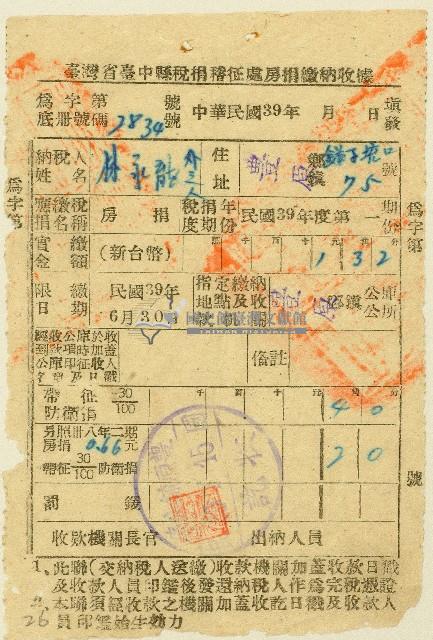 臺灣省臺中縣稅捐稽征處房捐繳納收據
為字第 號 中華民國39年 月 日填發
底冊號碼 2834 號
納稅人姓名 林永 外三人 住址 豐原 鄉鎮 口 75 號
應繳稅捐名稱 房捐 稅捐年度期份 民國39年度第一期
實繳金額 (新台幣) 132
限繳日期 民國39年6月30日 指定繳納地點及收款機關 豐原 區鄉鎮 公庫 公所
備註
帶征防衛捐 30/100 40
另照卅八年二期房捐 0.66 元
帶征 30/100 防衛捐 20
罰鍰
收款機關長官 出納人員
1、此聯(交納稅人送繳)收款機關加蓋收款日戳
及收款人員印鑑後發還納稅人作為完稅憑證
本聯須經收款機關加蓋收訖日戳及收款人
員印鑑始生效力
為字第
為字第 號
26